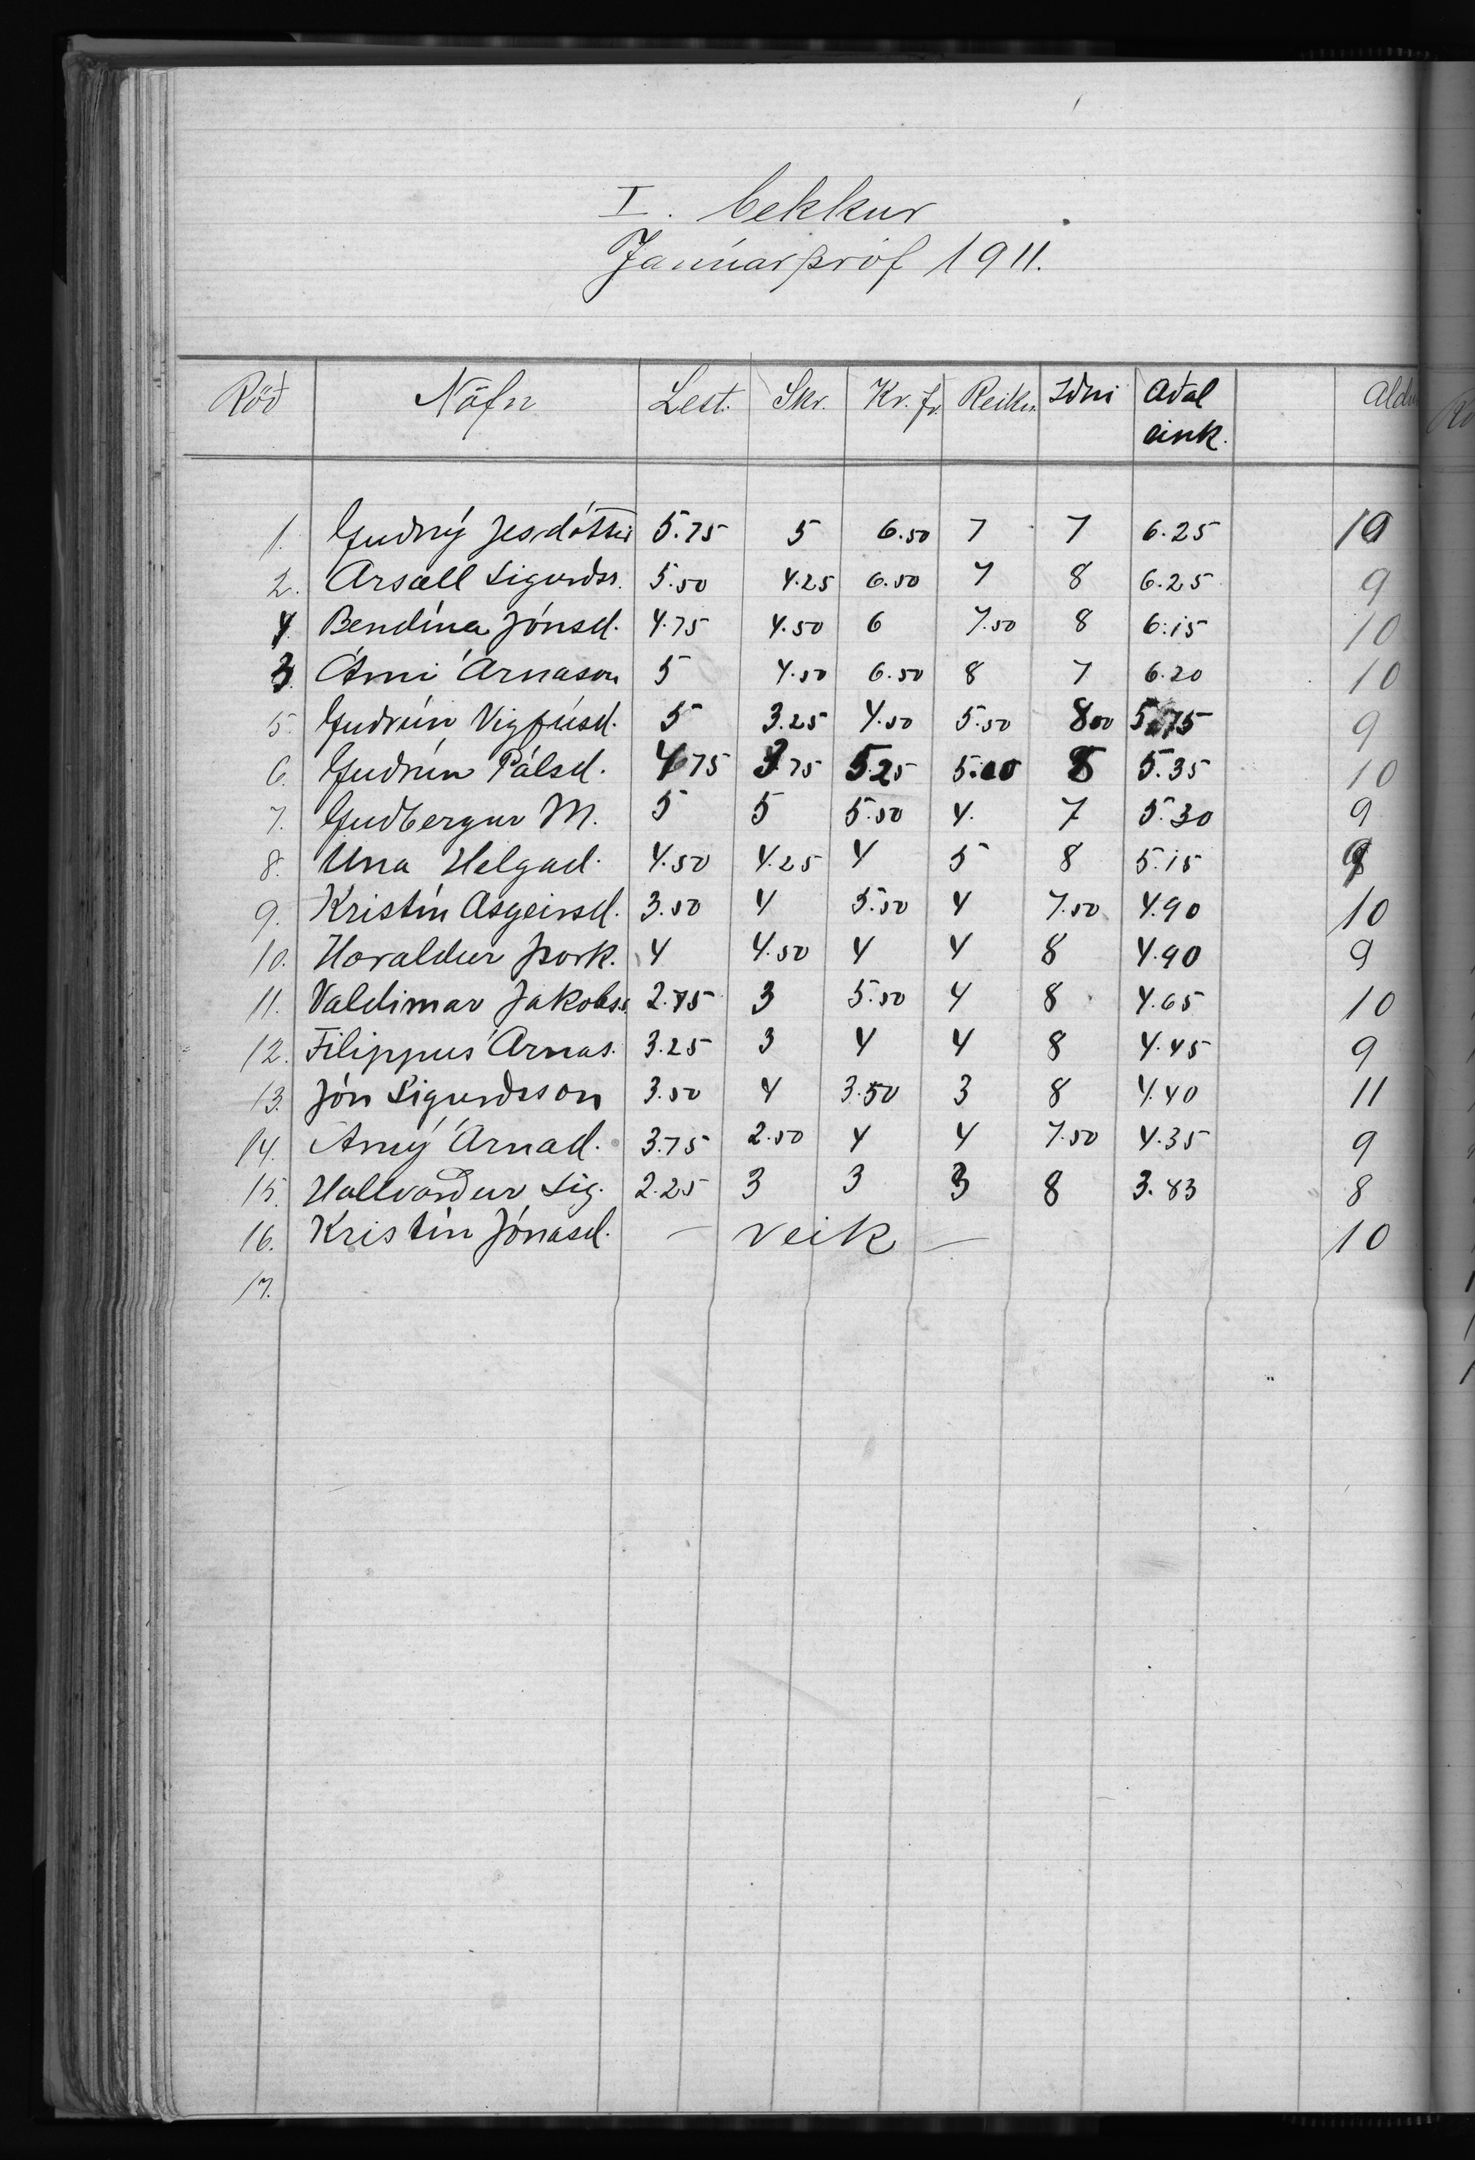 I. bekkur
Janúarpróf 1911.
Röð Nöfn Lest. Skr. Kr. fr. Reikn. Iðni Aðal eink. Aldur
1. Guðný Jesdóttir 5.75 5 6.50 7 7 6.25 10
2. Ársæll Sigurðss. 5.50 4.25 6.50 7 8 6.25 9
4. Bendína Jónsd. 4.75 4.50 6 7.50 8 6.15 10
3. Árni Árnason 5 4.50 6.50 8 7 6.20 10
5. Guðrún Vigfúsd. 5 3.25 4.50 5.50 8.00 9
6. Guðrún Pálsd. 4.75 3.75 5.25 8 5.35 10
7. Guðbergur M. 5 5 5.50 4. 7 5.30 9
8. Una Helgad. 4.50 4.25 4 5 8 5.15
9. Kristín Ásgeirsd. 3.50 4 5.50 4 7.50 4.90 10
10. Haraldur Þork. 4 4.50 4 4 8 4.90 9
11. Valdimar Jakobss. 2.75 3 5.50 4 8 4.65 10
12. Filippus Árnas. 3.25 3 4 4 8 4.45 9
13. Jón Sigurðsson 3.50 4 3.50 3 8 4.40 11
14. Árný Árnad. 3.75 2.50 4 4 7.50 4.35 9
15. Hallvarður Sig. 2.25 3 3 3 8 3.83 8
16. Kristín Jónasd. — veik — 10
17.